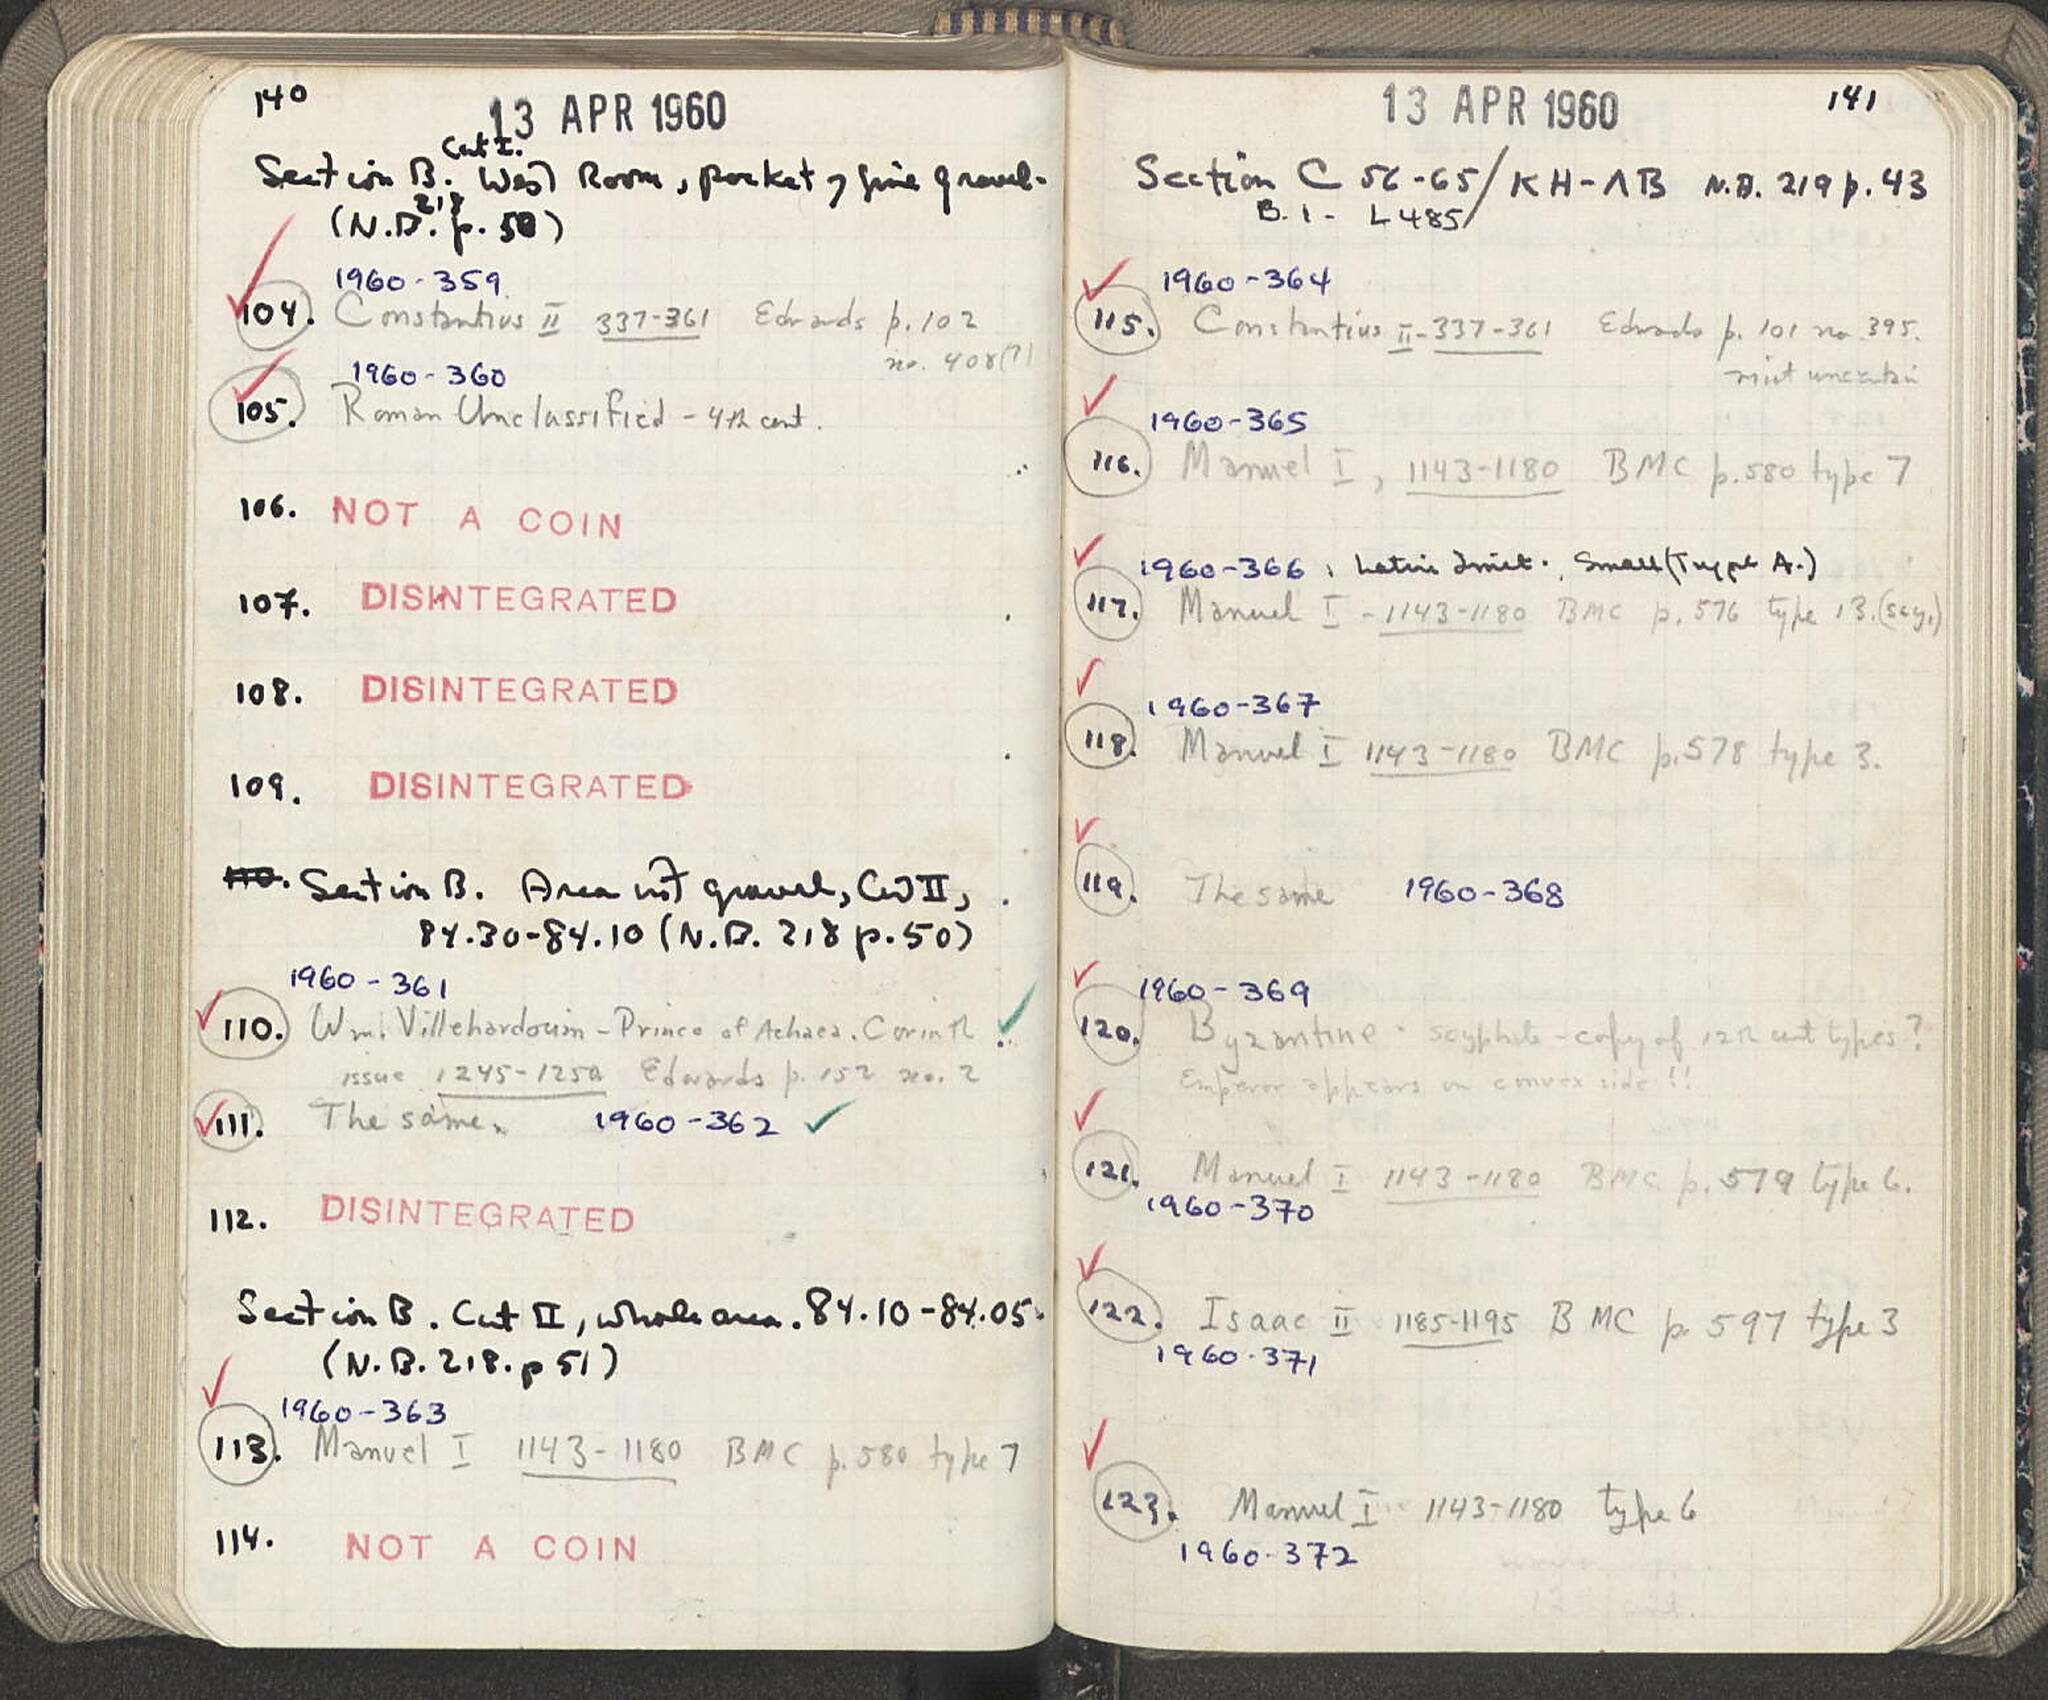 140
13 APR 1960
Cut I.
Section B. West Room, pocket of fine gravel.
218
(N.B. p. 50)
1960-359
104. Constantius II 337-361 Edwards p. 102
no. 408(?)
1960-360
105. Roman Unclassified - 4th cent.
106. NOT A COIN
107. DISINTEGRATED
108. DISINTEGRATED
109. DISINTEGRATED
110. Section B. Area not gravel, Cut II,
84.30-84.10 (N.B. 218 p. 50)
1960-361
110. Wm. Villehardouin - Prince of Achaea. Corinth
issue 1245-1250 Edwards p. 152 no. 2
111. The same. 1960-362
112. DISINTEGRATED
Section B. Cut II, whole area. 84.10-84.05.
(N.B. 218. p 51)
1960-363
113. Manuel I 1143-1180 BMC p. 580 type 7
114. NOT A COIN
13 APR 1960
141
Section C 56-65/KH-ΛB N.B. 219 p. 43
B. 1 - L485
1960-364
115. Constantius II-337-361 Edwards p. 101 no. 395.
mint uncertain
1960-365
116. Manuel I, 1143-1180 BMC p. 580 type 7
1960-366 : Latin Imit., Small (Type A.)
117. Manuel I - 1143-1180 BMC p. 576 type 13. (scy.)
1960-367
118. Manuel I 1143-1180 BMC p. 578 type 3.
119. The same 1960-368
1960-369
120. Byzantine - scyphate - copy of 12th cent types?
Emperor appears on convex side!!
121. Manuel I 1143-1180 BMC p. 579 type 6.
1960-370
122. Isaac II 1185-1195 BMC p. 597 type 3
1960-371
123. Manuel I 1143-1180 type 6
1960-372